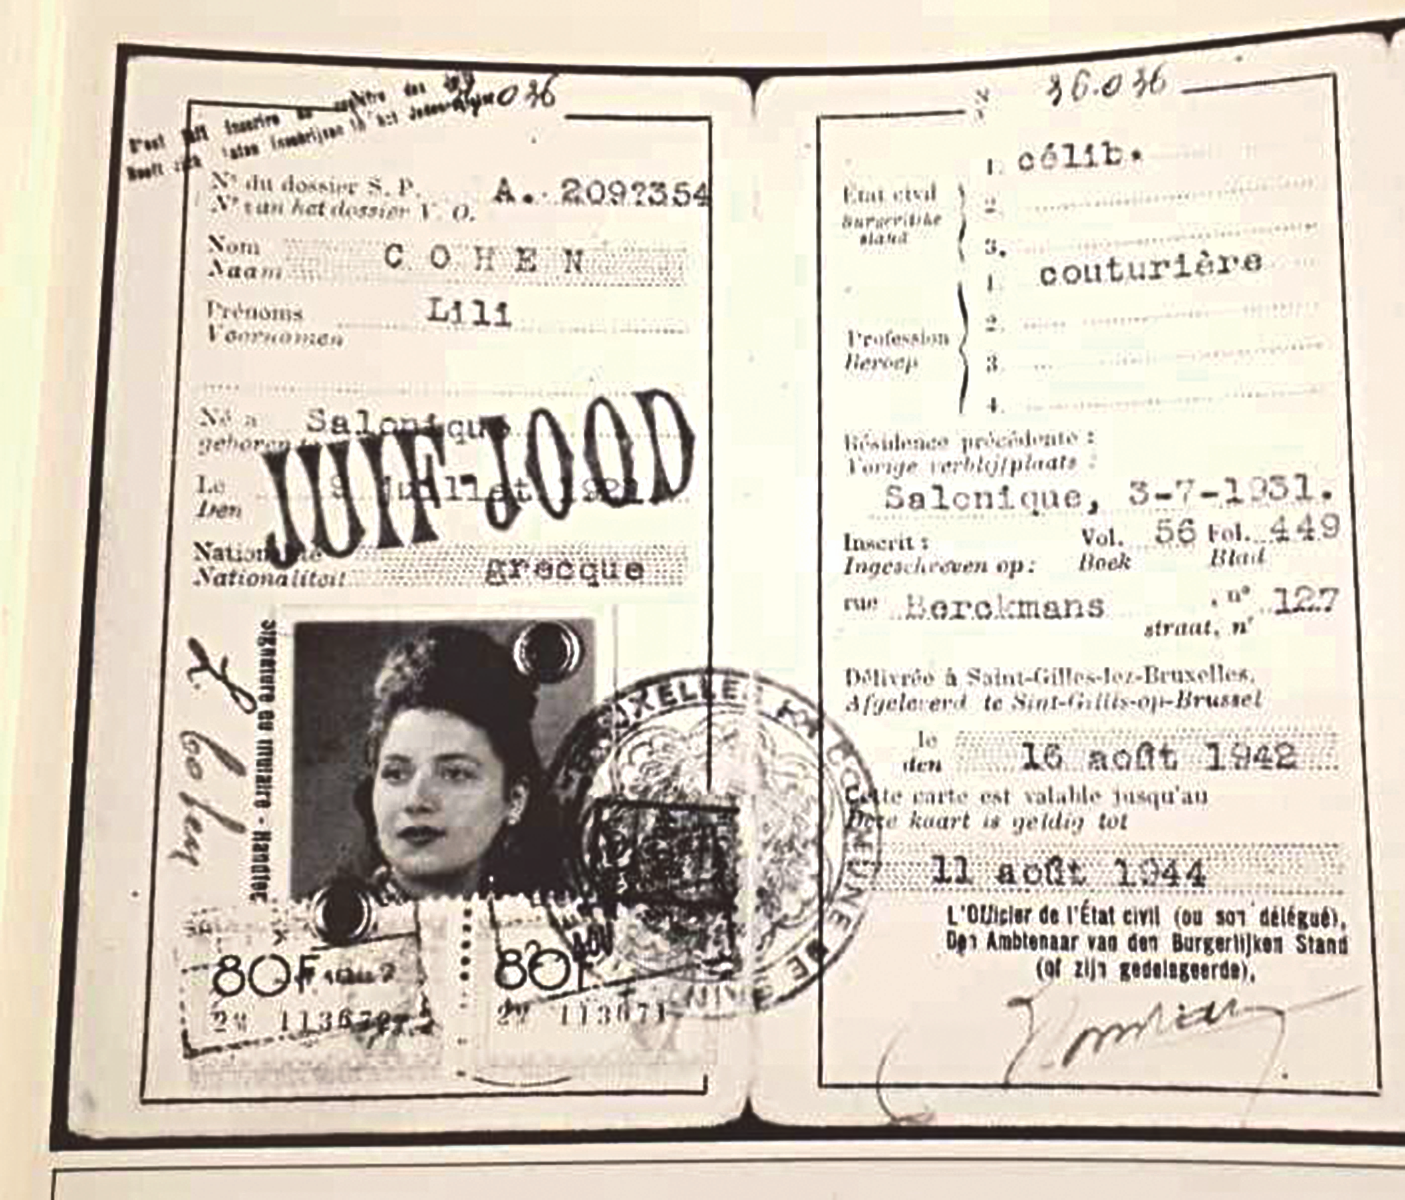 S'est fait inscrire au registre des
Heeft zich laten inschrijven in het Joden-register
Nº du dossier S. P.
A. 2092354
Nº van het dossier V. O.
Nom
Naam
COHEN
Prénoms
Voornamen
Lili
Né à
geboren te
Salonique
JUIF-JOOD
Le
Den
juillet
Nationalité
Nationaliteit
grecque
L. Cohen
Signature du titulaire - Handtec
80F
80F
113671
Nº 36.036
Etat civil
Burgerlijke stand
1. célib.
2.
3.
Profession
Beroep
1. couturière
2.
3.
4.
Résidence précédente :
Vorige verblijfplaats :
Salonique, 3-7-1931.
Inscrit : Vol. 56 Fol. 449
Ingeschreven op: Boek Blad
rue Berckmans, nº 127
straat, nʳ
Délivrée à Saint-Gilles-lez-Bruxelles,
Afgeleverd te Sint-Gillis-op-Brussel
le
den
16 août 1942
Cette carte est valable jusqu'au
Deze kaart is geldig tot
11 août 1944
L'Officier de l'État civil (ou son délégué),
Den Ambtenaar van den Burgerlijken Stand
(of zijn gedelegeerde),